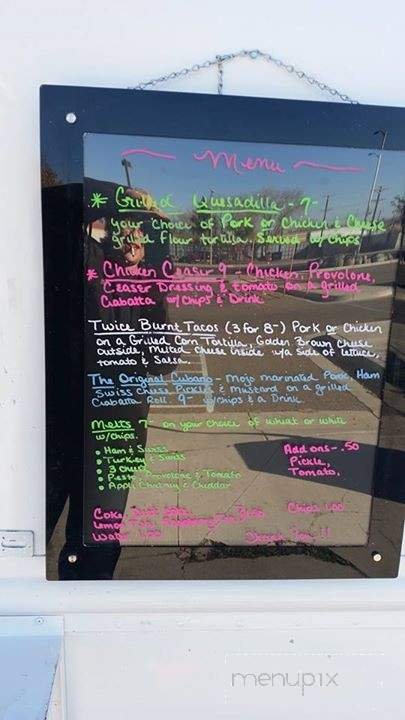 ~ Menu ~
* Grilled Quesadilla - 7-
your choice of Pork or Chicken & Cheese
grilled Flour tortilla. Served w/ chips
* Chicken Ceaser 9 - Chicken, Provolone,
Ceaser Dressing & tomato on a grilled
Ciabatta w/ Chips & Drink
Twice Burnt Tacos (3 for 8-) Pork or Chicken
on a Grilled Corn Tortilla, Golden Brown cheese
outside, melted cheese inside w/a side of lettuce,
tomato & Salsa.
The Original Cubano - Mojo marinated Pork, Ham
Swiss Cheese Pickle & mustard on a grilled
Ciabatta Roll 9- w/chips & a Drink
Melts 7- on your choice of wheat or white
w/chips.
• Ham & Swiss
• Turkey & Swiss
• 3 Cheese
• Pesto Provolone & Tomato
• Apple Chutney & Cheddar
Add ons - .50
Pickle,
Tomato,
Coke, Diet
Lemon
Water 1.00
Chips 1.00
Thank You!!
menupix